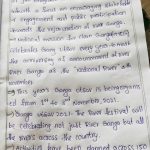 which is been an encouraging stakeholder
engagement and public participation
towards the rejuvenation of river Ganga.
The national mission for clean Ganga (NMCG)
celebrates Ganga Utsav every year to mark
the anniversary of announcement of river
Ganga as the "national River" 4th
November
This year's Ganga Utsav is being organiz-
ed from 1st to 3rd November, 2021.
Ganga Utsav 2021- The River Festival will
be celebrating not just River Ganga but all
the rivers across the country.
Activities have been planned across 150